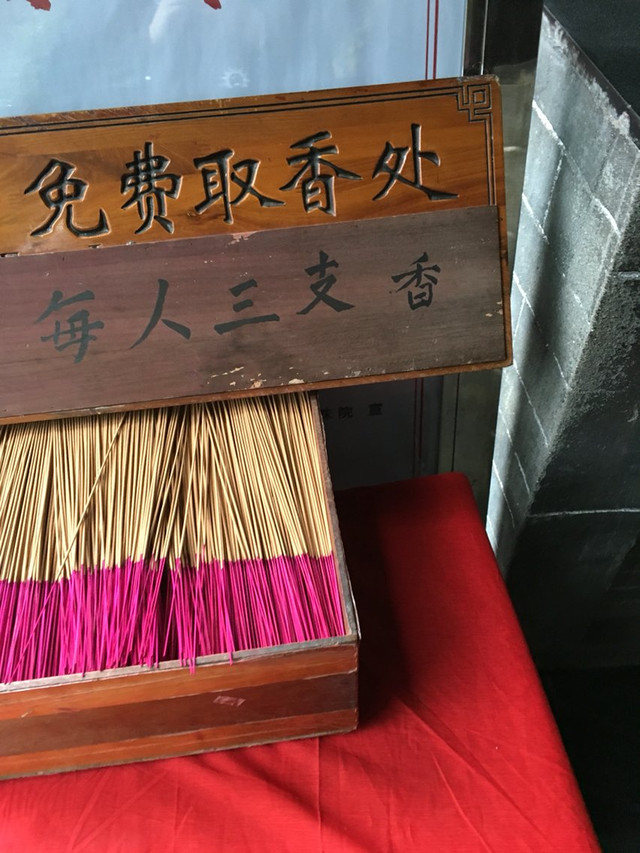 免费取香处
每人三支香
院 宣